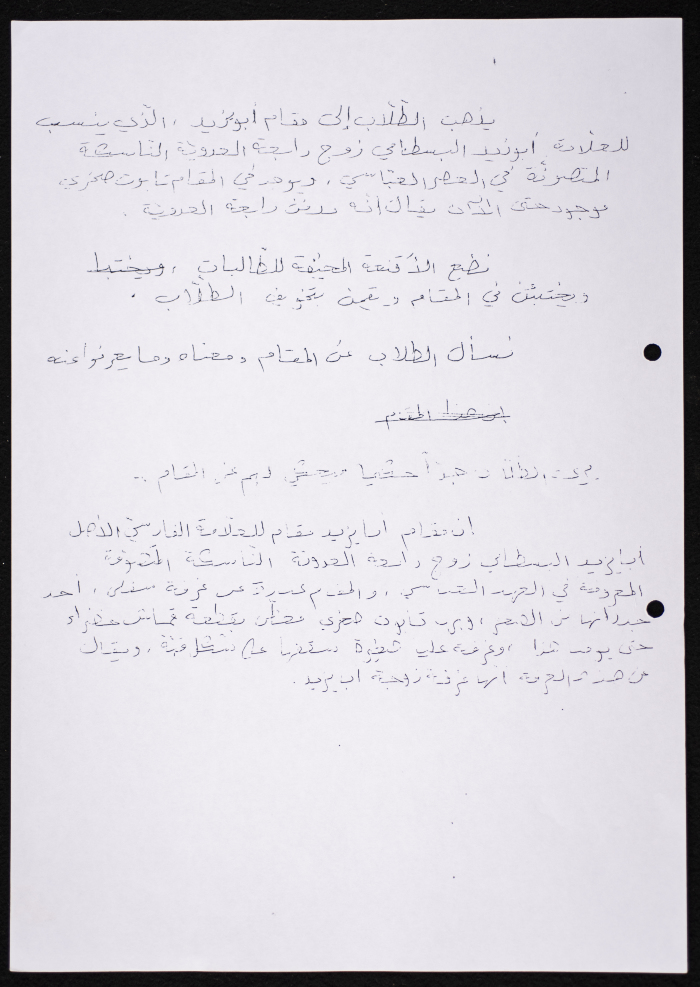 يذهب الطلّاب إلى مقام أبو يزيد ، الذي ينسب
للعلّامة أبو يزيد البسطامي زوج رابعة العدوية الناسكة
المتصوفة في العصر العبّاسي ، ويوجد في المقام تابوت صخري
موجود حتى الآن يقال أنه مدفن رابعة العدوية .
نضع الأقنعة المخيفة للطالبات ، ويختبئ
ويختبئن في المقام ويقمن بتخويف الطلّاب .
نسأل الطلاب عن المقام ومعناه وما يعرفوا عنه
أين هذا المقام
هم عن المقام ..
ان مقام أبا يزيد مقام للعلّامة الفارسي الأصل
أبا يزيد البسطامي زوج رابعة العدوية الناسكة المتصوفة
المعروفة في العهد العباسي ، والمقام عبارة عن غرفة سفلى ، أحد
جدرانها من الصخر ، وبه تابوت صخري مغطى بقطعة قماش خضراء
حتى يومنا هذا ، وغرفة علوية صغيرة سقفها على شكل قبة ، ويقال
عن هذه الغرفة انها غرفة زوجة ابا يزيد .